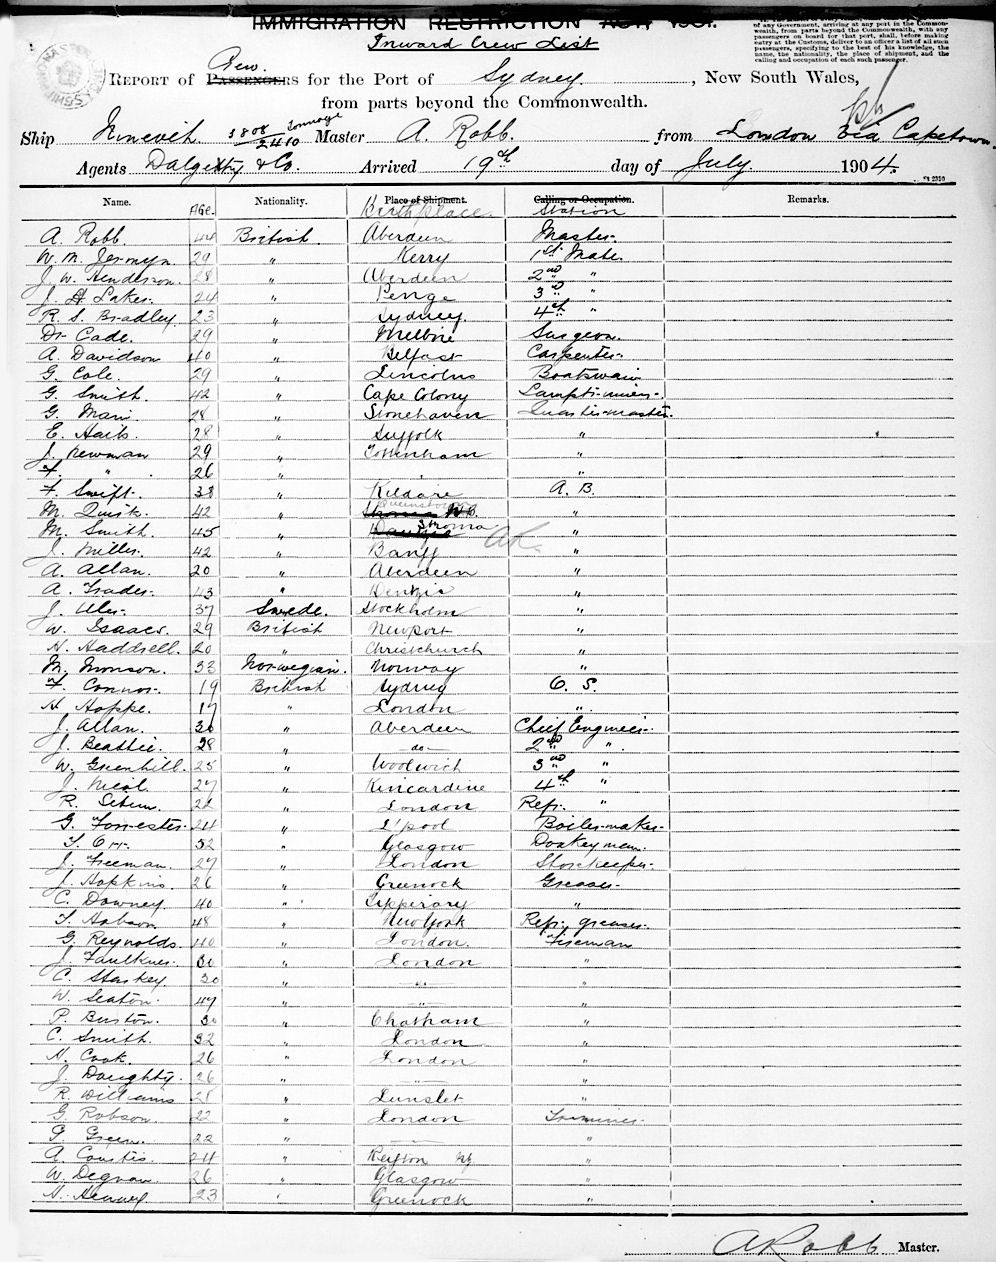 IMMIGRATION RESTRICTION ACT 1901.
Inward Crew List
of any Government, arriving at any port in the Commonwealth, from parts beyond the Commonwealth, with any
passengers on board for that port, shall, before making
entry at the Customs, deliver to an officer a list of all such
passengers, specifying to the best of his knowledge, the
name, the nationality, the place of shipment, and the
calling and occupation of each such passenger.
Crew.
REPORT OF PASSENGERS for the Port of Sydney, New South Wales,
from parts beyond the Commonwealth.
Ship Nineveh 3808/2410 Tonnage Master A. Robb. from London via Capetown.
Agents Dalgetty & Co. Arrived 19th day of July 1904.
Name. Age. Nationality. Place of Shipment. Birthplace. Calling or Occupation. Station Remarks.
A. Robb. 44 British. Aberdeen Master.
W. M. Jermyn 29 " Kerry 1st Mate.
J. W. Henderson. 28 " Aberdeen 2nd "
J. H. Lakes. 24 " Penge 3rd "
R. S. Bradley. 23 " Sydney. 4th "
Dr Cade. 29 " Melbne Surgeon.
A. Davidson 40 " Belfast Carpenter.
G. Cole. 29 " Lincolns Boatswain
G. Smith. 42 " Cape Colony Lamptrimmer.
G. Main. 28 " Stonehaven Quartermaster.
E. 28 " Suffolk "
J. Newman 29 " Tottenham "
F. " 26 " "
F. Swift. 38 " Kildare A. B.
M. Quirk. 42 " Queenstown "
M. Smith. 45 " Stroma "
J. Miller. 42 " Banff "
A. Allan. 20 " Aberdeen "
A. 43 " "
J. 37 Swede. Stockholm "
W. Isaacs. 29 British Newport "
H. Haddrell. 20 " Christchurch "
M. Monson. 33 Norwegian. Norway "
F. Connor. 19 British Sydney O. S.
H. Hoppe. 17 " London "
J. Allan. 30 " Aberdeen Chief Engineer.
J. Beattie. 28 " do 2nd "
W. Greenhill. 25 " Woolwich 3rd "
J. Nicol. 27 " Kincardine 4th "
R. " London Refr. "
G. Forrester. 24 " L'pool Boilermaker.
T. Orr. 32 " Glasgow Donkeyman.
J. Freeman. 27 " London Storekeeper.
J. Hopkins. 26 " Greenock Greaser.
C. Downey. 40 " Tipperary "
T. Hobson. 48 " New York Refr. greaser.
G. Reynolds. 40 " London. Fireman
J. Faulkner. 30 " London "
C. Starkey 30 " " "
W. Seaton. 47 " " "
P. Burton. 30 " Chatham "
C. Smith. 32 " London "
H. Cook. 26 " London "
J. Doughty. 26 " " "
R. Williams 28 " Hunslet "
G. Robson. 22 " London Trimmer.
P. Green. 22 " "
A. 24 " "
W. Degnan. 26 " Glasgow "
H. 23 " Greenock "
A Robb Master.